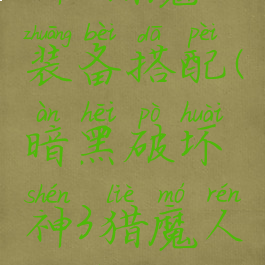 装备搭配(
àn hēi pò huài
暗黑破坏
shén liè mó rén
神3猎魔人